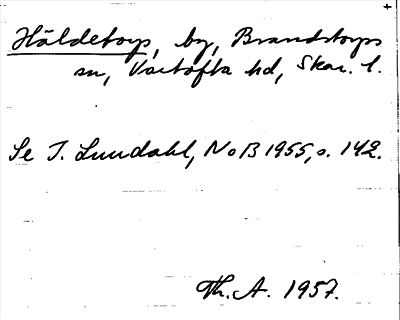 Häldetorp, by, Brandstorps
sn, Vartofta hd, Skar. l.
Se I. Lundahl, NoB 1955, s. 142.
Th. A. 1957.